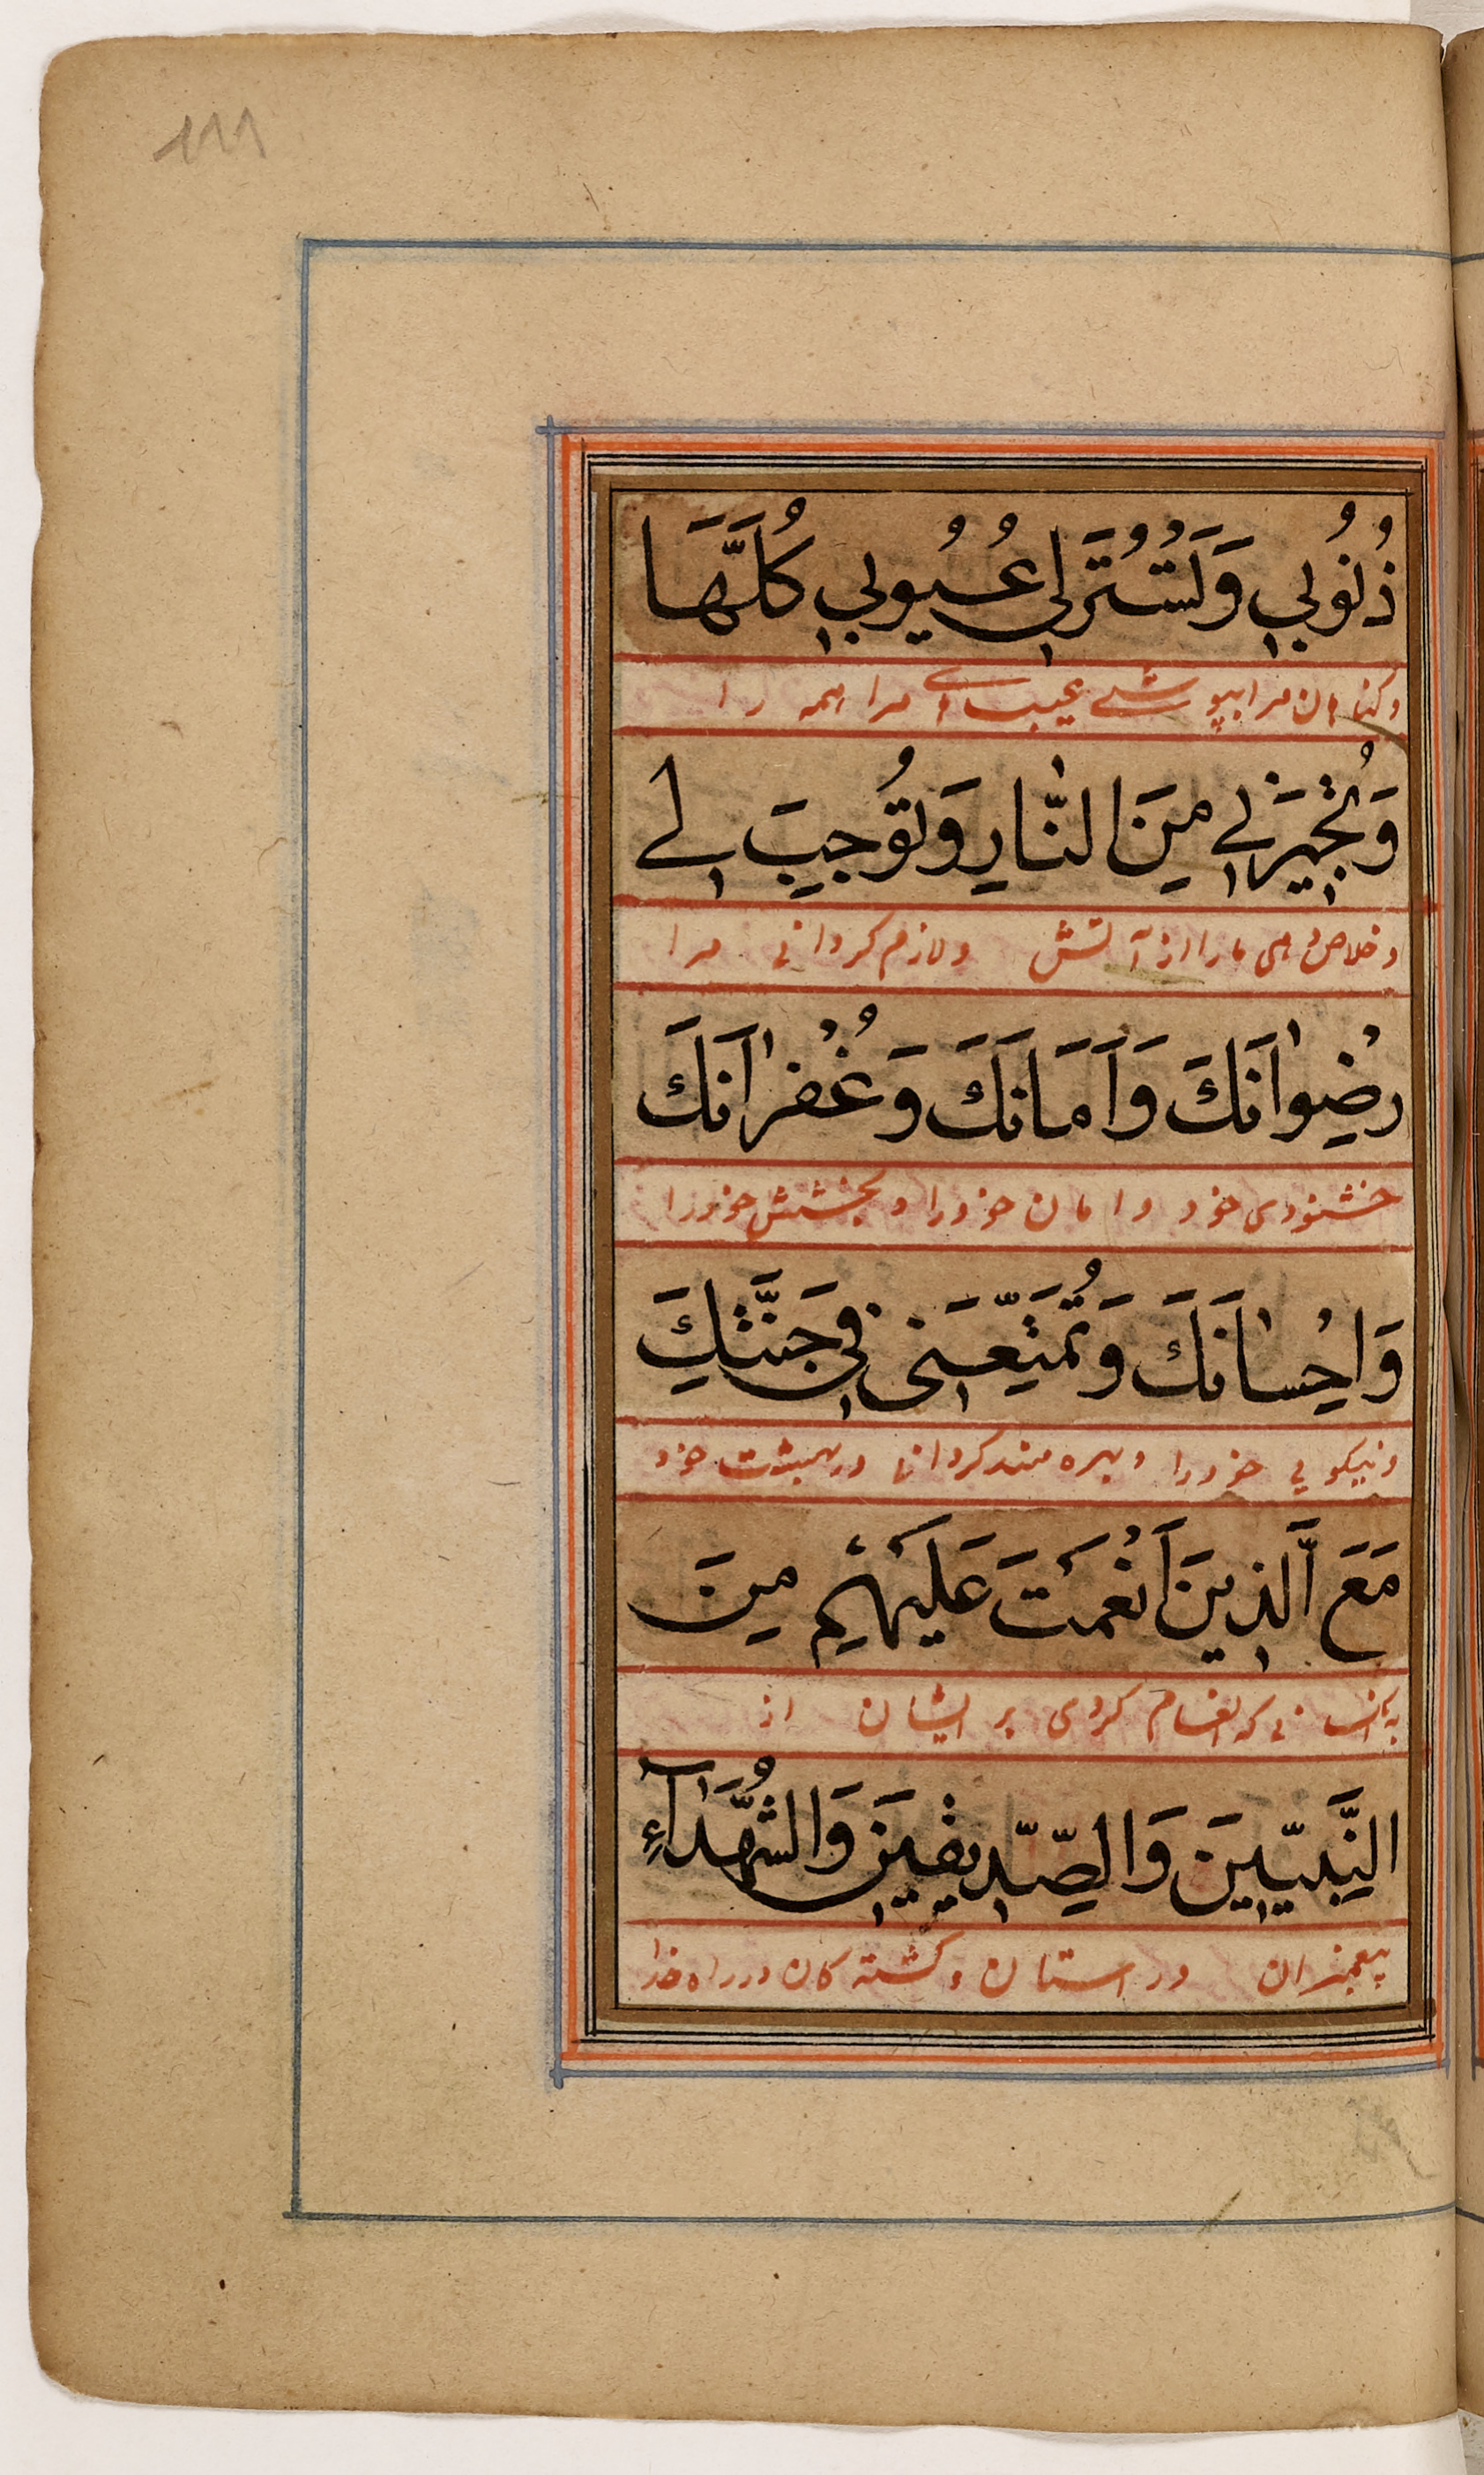 ١١١
ذُنُوبِي وَتَسْتُرَ لِي عُيُوبِي كُلَّهَا
وکناهان مرا بپوشی عیبهای مرا همه را
وَتُجِيرَنِي مِنَ النَّارِ وَتُوجِبَ لِي
وخلاص دهی مارا از آتش ولازم کردانی مرا
رِضْوَانَكَ وَاَمَانَكَ وَغُفْرَانَكَ
خشنودی خود وامان خودرا وبخشش خودرا
وَاِحْسَانَكَ وَتُمَتِّعَنِي فِي جَنَّتِكَ
ونیکویی خودرا وبهره مند کردانی در بهشت خود
مَعَ الَّذِينَ اَنْعَمْتَ عَلَيْهِمْ مِنَ
کسانی که انعام کردی بر ایشان از
النَّبِيِّينَ وَالصِّدِّيقِينَ وَالشُّهَدَآءِ
پیغمبران وراستان وکشته کان در راه خدا